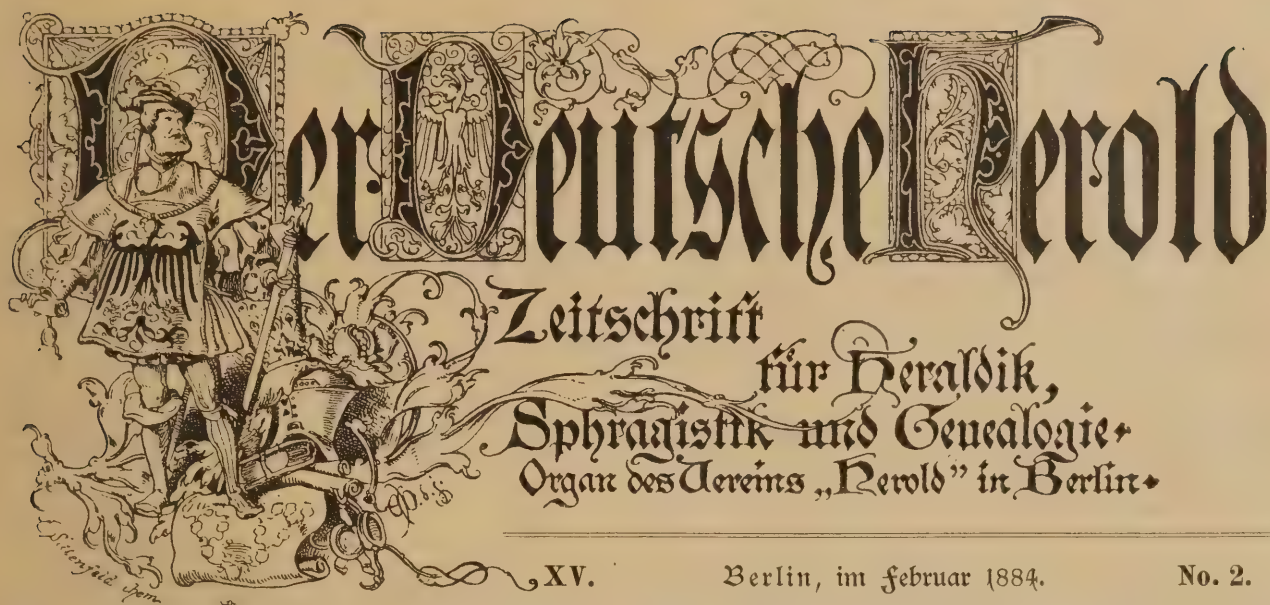 Der Deutsche Herold
Zeitschrift
für Heraldik,
Sphragistik und Genealogie.
Organ des Vereins „Herold” in Berlin.
XV. Berlin, im Februar 1884. No. 2.